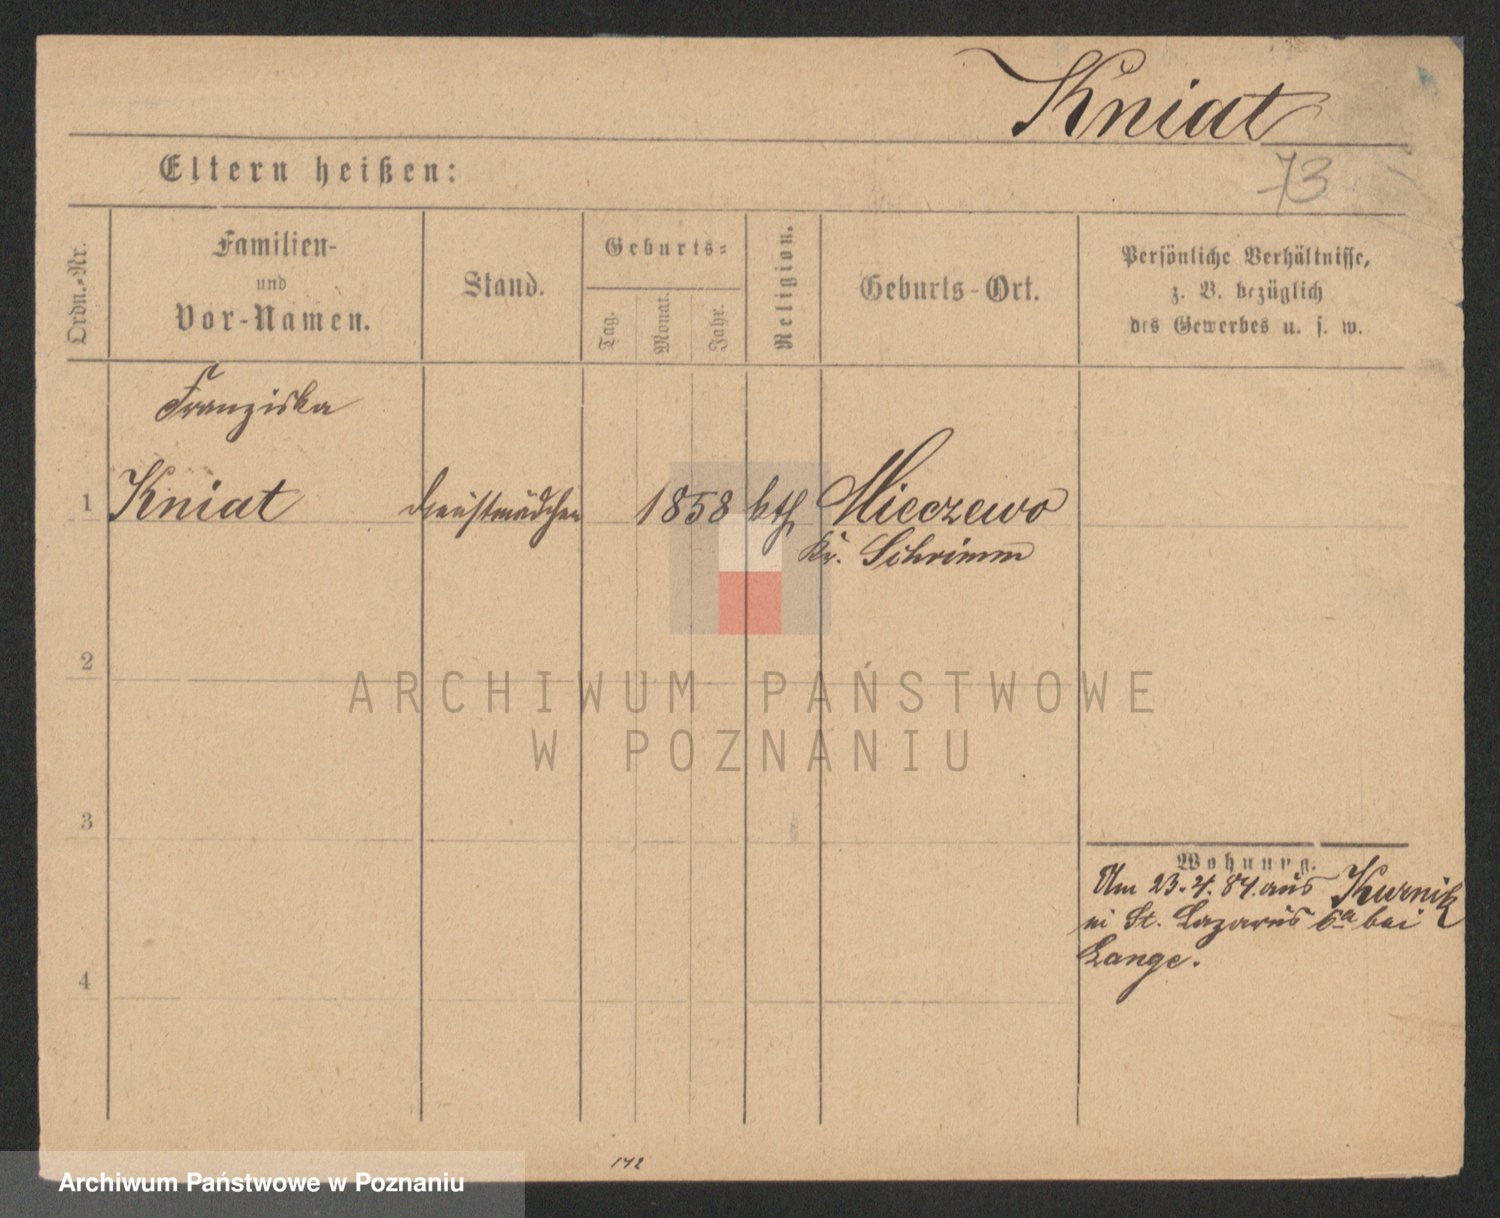 Kniat
73
Eltern heißen:
Ordn.-Nr.
Familien-
und
Vor-Namen.
Stand.
Geburts-
Tag.
Monat.
Jahr.
Religion.
Geburts-Ort.
Persönliche Verhältnisse,
z. B. bezüglich
des Gewerbes u. s. w.
Franziska
1 Kniat Dienstmädchen 1858 kth Mieczewo
Kr. Schrimm
2
ARCHIWUM PAŃSTWOWE
W POZNANIU
3
Wohnung.
Am 23.4.84. aus Kurnik
in St. Lazarus 6a bei
Lange.
4
142
Archiwum Państwowe w Poznaniu